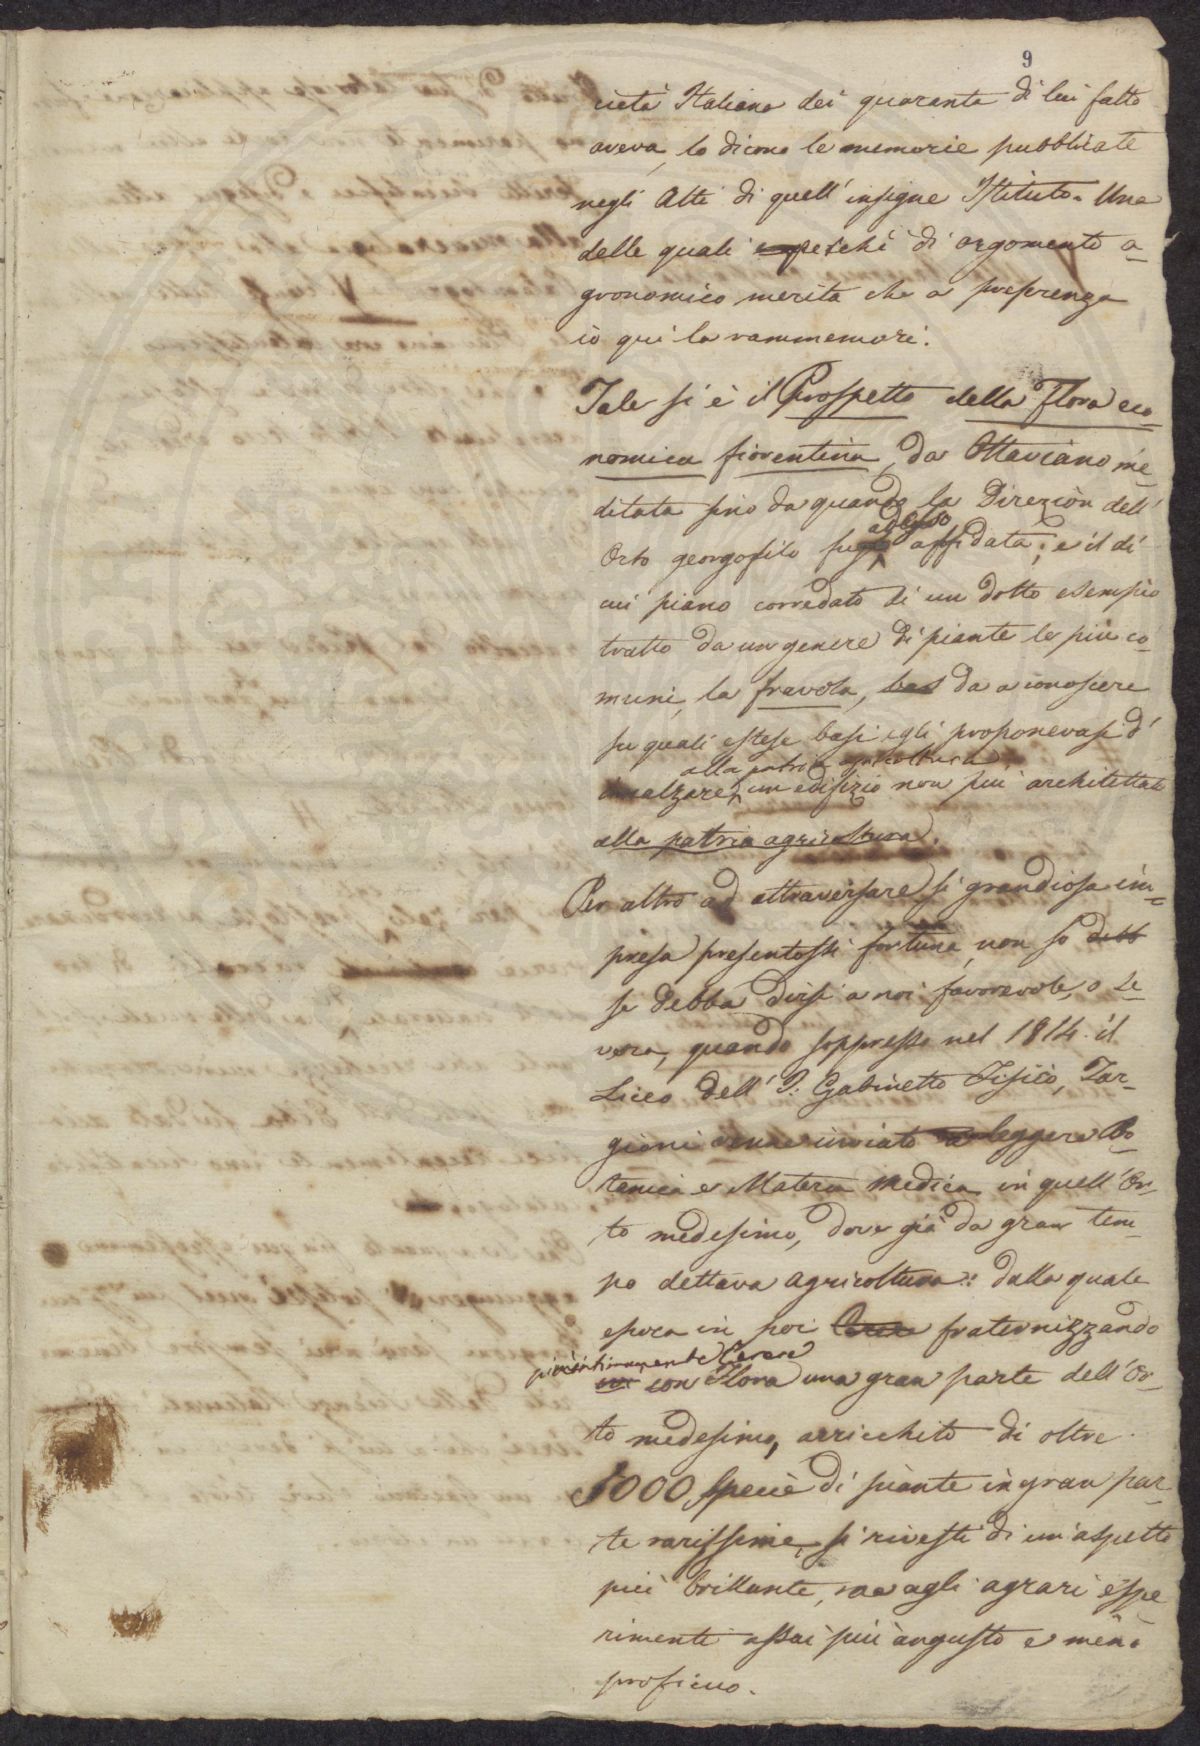 9
cietà Italiana dei quaranta di lui fatto
aveva, lo dicono le memorie pubblicate
negli Atti di quell'insigne Istituto. Una
delle quali perchè di argomento a-
gronomico merita che a preferenza
io qui la rammemori.
Tale si è il Prospetto della Flora eco-
nomica fiorentina, da Ottaviano me-
ditata sino da quando la Direzion dell'
adesso
Orto georgofilo fugli affidata; e il di
cui piano corredato di un dotto esempio
tratto da un genere di piante le più co-
muni, la fravola, da a conoscere
su quali estese basi egli proponevasi d'
alla patria agricoltura
inalzare un edifizio non più architettato
alla patria agricoltura.
Per altro ad attraversare sì grandiosa im-
presa presentossi fortuna, non so debb
se debba dirsi a noi favorevole, o se-
vera, quando soppresso nel 1814. il
Liceo dell' I: Gabinetto Fisico, Tar-
gioni venne inviato a leggere Bo-
tanica e Materia Medica in quell'Or-
to medesimo, dove già da gran tem-
po dettava Agricoltura: dalla quale
epoca in poi Cerere fraternizzando
più intimamente Cerere
con Flora una gran parte dell'Or-
to medesimo, arricchito di oltre
5000 specie di piante in gran par-
te rarissime, si rivestì di un'aspetto
più brillante, ma agli agrari espe-
rimenti assai più angusto e meno
proficuo.